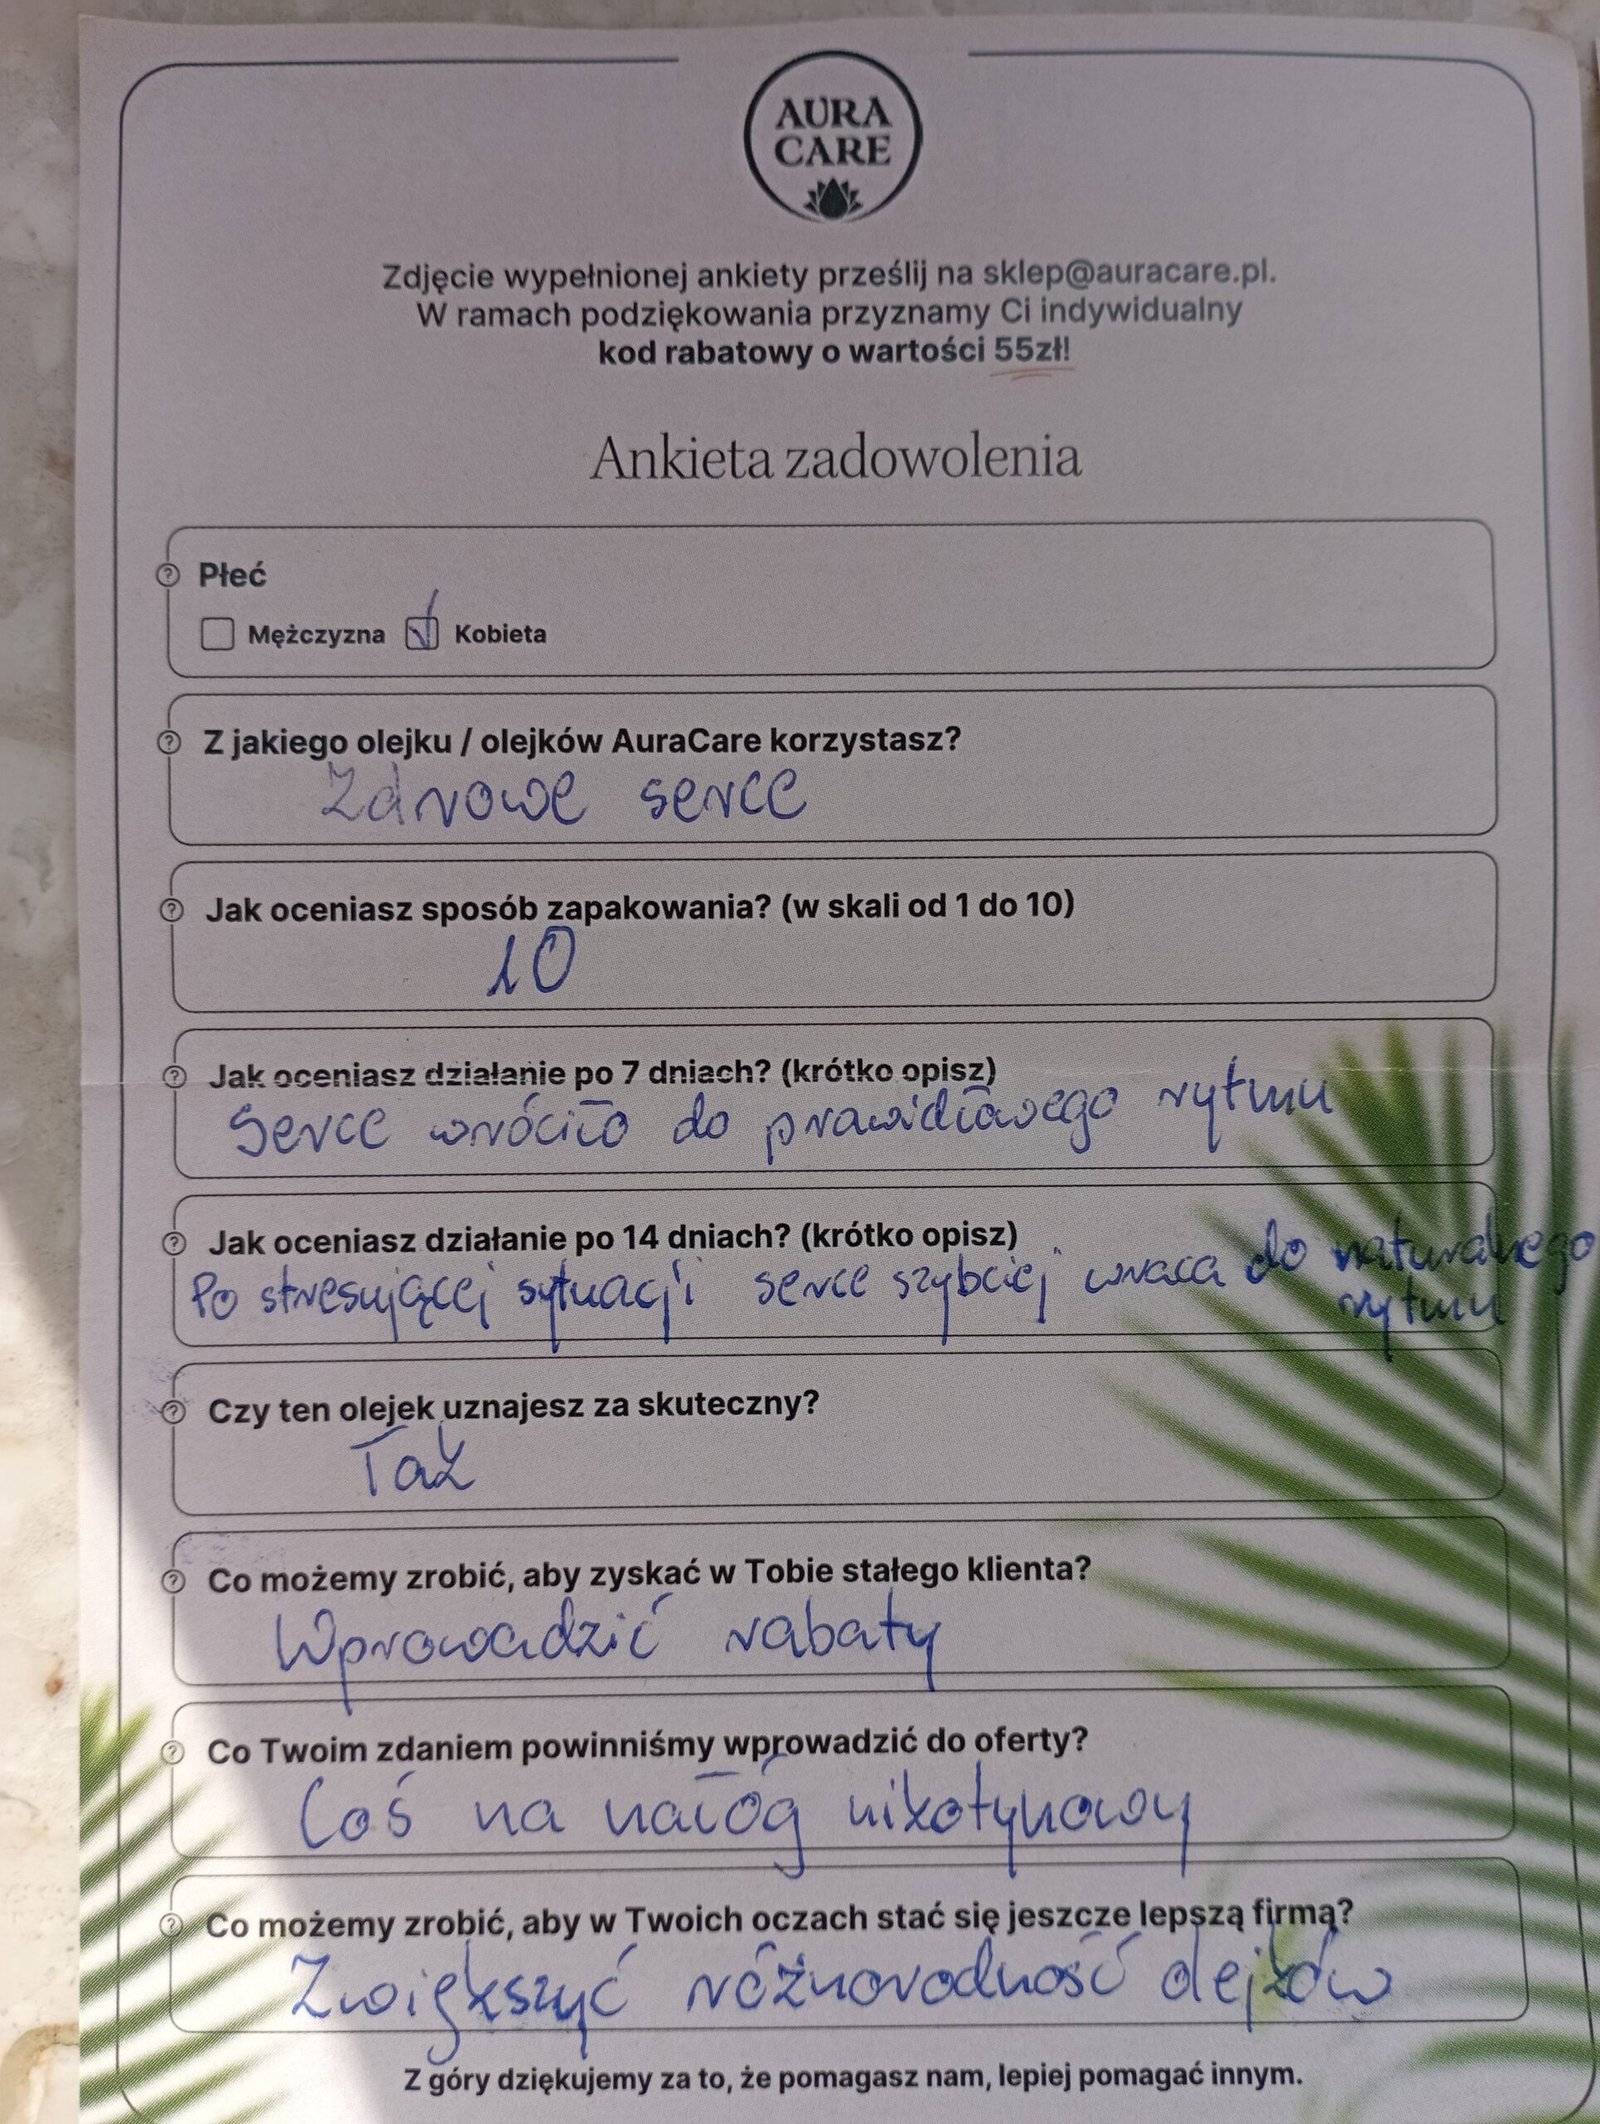 AURA
CARE
Zdjęcie wypełnionej ankiety prześlij na sklep@auracare.pl.
W ramach podziękowania przyznamy Ci indywidualny
kod rabatowy o wartości 55zł!
Ankieta zadowolenia
Płeć
Mężczyzna Kobieta
Z jakiego olejku / olejków AuraCare korzystasz?
Zdrowe serce
Jak oceniasz sposób zapakowania? (w skali od 1 do 10)
10
Jak oceniasz działanie po 7 dniach? (krótko opisz)
Serce wróciło do prawidłowego rytmu
Jak oceniasz działanie po 14 dniach? (krótko opisz)
Po stresującej sytuacji serce szybciej wraca do naturalnego
rytmu
Czy ten olejek uznajesz za skuteczny?
Tak
Co możemy zrobić, aby zyskać w Tobie stałego klienta?
Wprowadzić rabaty
Co Twoim zdaniem powinniśmy wprowadzić do oferty?
Coś na nałóg nikotynowy
Co możemy zrobić, aby w Twoich oczach stać się jeszcze lepszą firmą?
Zwiększyć różnorodność olejków
Z góry dziękujemy za to, że pomagasz nam, lepiej pomagać innym.